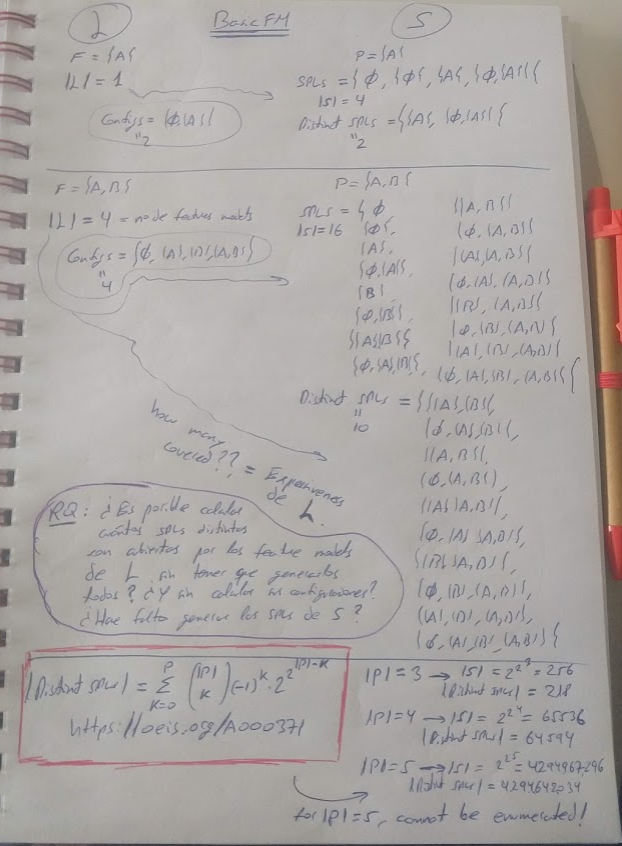 L
Basic FM
S
F = {A}
|L| = 1
Configs = {Φ, {A}}
"
2
P = {A}
SPLs = {Φ, {Φ}, {A}, {Φ, {A}}}
|S| = 4
Distinct SPLs = {{A}, {Φ, {A}}}
"
2
F = {A, B}
|L| = 4 = no de feature models
Configs = {Φ, {A}, {B}, {A, B}}
"
4
how many
covered?? = Expresiveness
de L.
P = {A, B}
SPLs = { Φ
|S| = 16 {Φ},
{A},
{Φ, {A}},
{B}
{Φ, {B}},
{{A}{B}}
{Φ, {A}, {B}},
{{A, B}}
{Φ, {A, B}}
{{A}, {A, B}}
{Φ, {A}, {A, B}}
{{B}, {A, B}}
{Φ, {B}, {A, B}}
{{A}, {B}, {A, B}}
{Φ, {A}, {B}, {A, B}}}
Distinct SPLs = {{{A}, {B}},
"
10
{Φ, {A}, {B}},
{{A, B}},
{Φ, {A, B}},
{{A}{A, B}},
{Φ, {A}, {A, B}},
{{B}{A, B}},
{Φ, {B}, {A, B}},
{{A}, {B}, {A, B}},
{Φ, {A}, {B}, {A, B}}}
RQ: ¿Es posible calcular
cuántos SPLs distintos
son cubiertos por los feature models
de L sin tener que generarlos
todos? ¿Y sin calcular sus configuraciones?
¿Hace falta generar las SPLs de S?
|Distinct SPLs| = Σ_{K=0}^{P} (|P| K) (-1)^K · 2^{2^{|P|-K}}
https://oeis.org/A000371
|P| = 3 → |S| = 2^{2^3} = 256
|Distinct SPLs| = 218
|P| = 4 → |S| = 2^{2^4} = 65536
|Distinct SPLs| = 64594
|P| = 5 → |S| = 2^{2^5} = 4294967296
|Distinct SPLs| = 4294642034
for |P| = 5, cannot be enumerated!